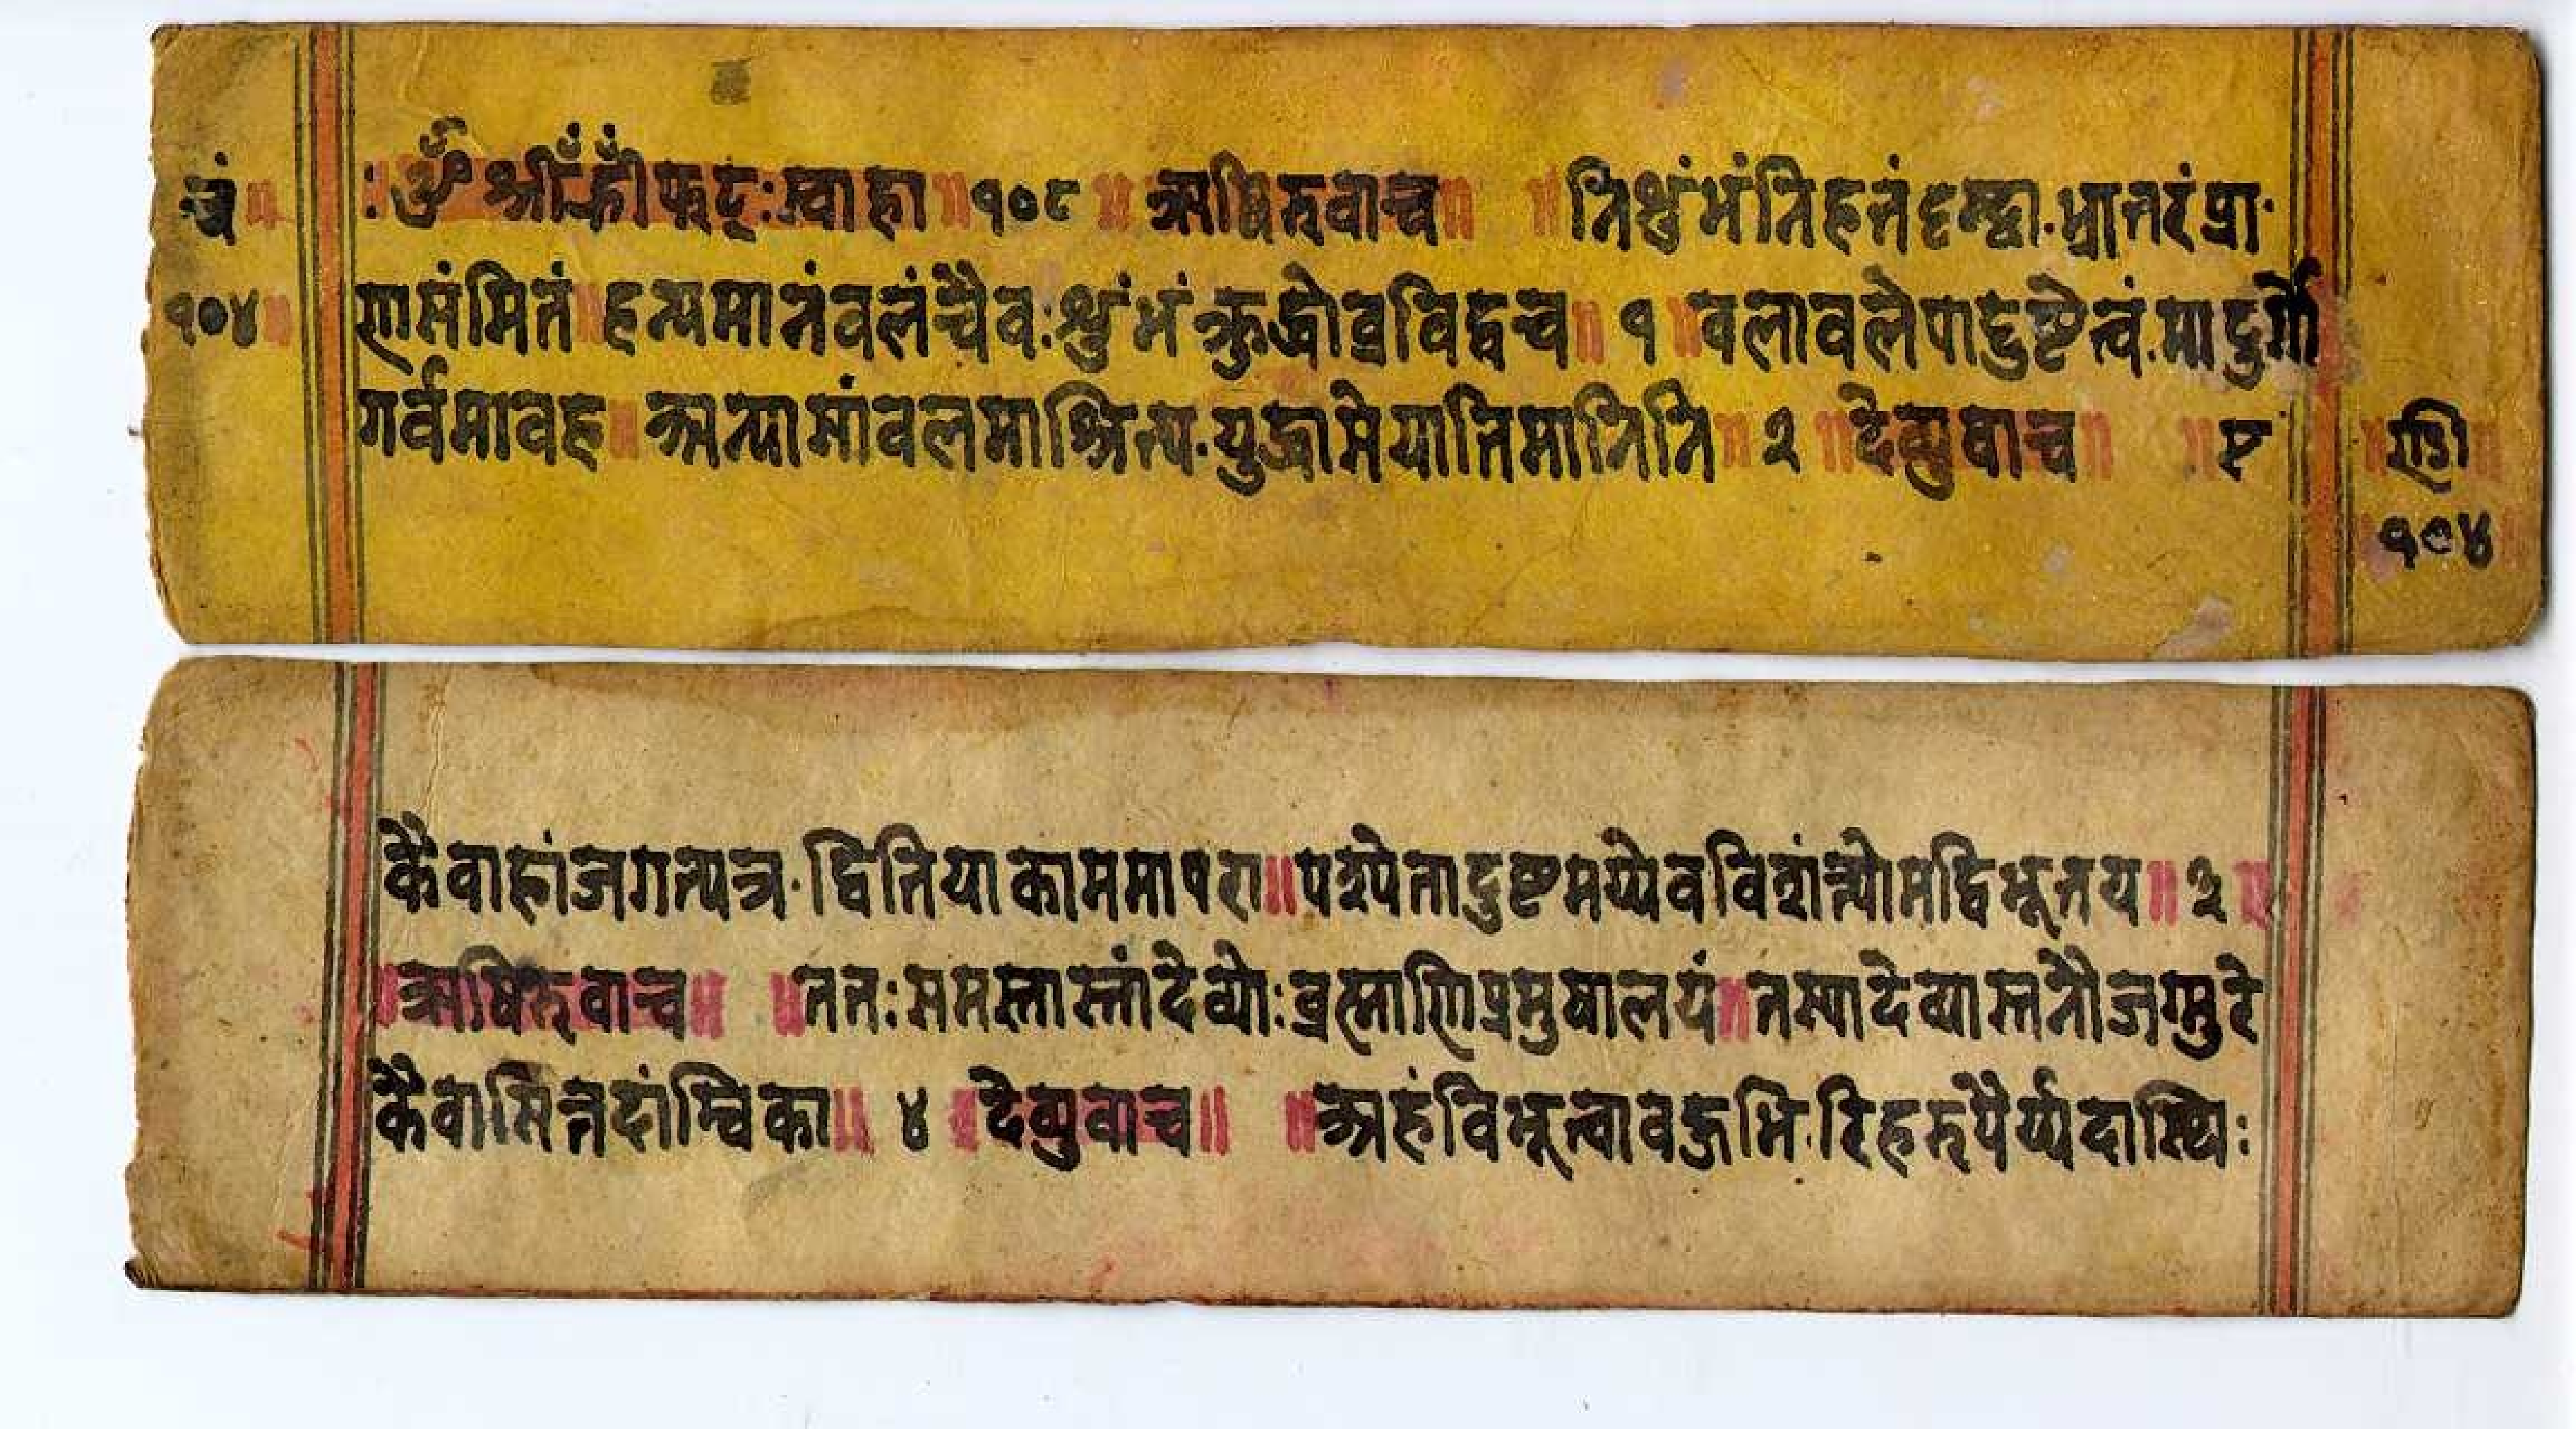 चं॥ :ॐ श्रीँह्रीँफट्:स्वाहा॥१०८॥ ऋषिरुवाच॥ ॥निशुंभंनिहतंदृष्ट्वा.भ्रातरंप्रा.
१०४॥ णसंमितं॥हन्यमानंवलंचैव:शुंभंक्रुद्धोव्रविद्वच॥१॥वलावलेपादुष्टेत्वं.मादुर्गो
गर्वमावह॥अन्यासांवलमाश्रित्य.युद्धासेयातिमानिनि॥२॥देव्युवाच॥ ॥ए ॥ण्डि॥
१०४
कैवाहांजगत्यत्र.द्वितियाकाममाषरा॥पश्येतादुष्टमय्येवविशंत्योमद्विभूतय॥३॥
॥ऋषिरुवाच॥ ॥तत:समस्तास्तांदेव्यो:व्रह्माणिप्रमुषालयं॥तस्यादेव्यास्तनौजग्मुरे
कैवासित्तदांम्विका॥४॥देव्युवाच॥ ॥अहंविभूत्वावहुभि.रिहरुपैर्य्यदास्थि: